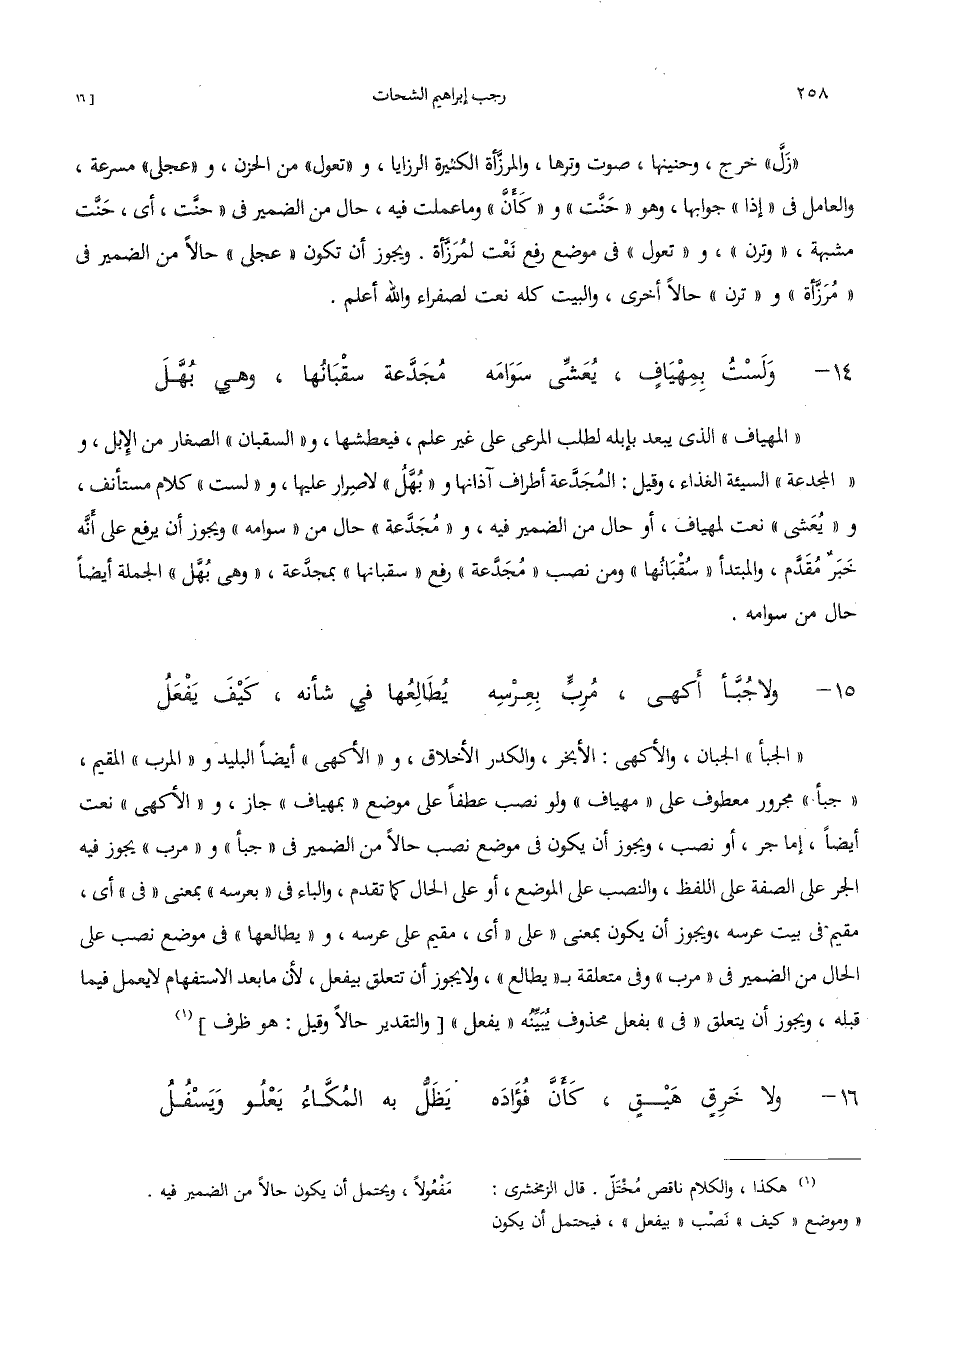 ٢٥٨ رجب إبراهيم الشحات [ ١٦
«زَلَّ» خرج ، وحنينها ، صوت وترها ، والمرزَّأة الكثيرة الرزايا ، و «تعول» من الحزن ، و «عجلى» مسرعة ،
والعامل فى « إذا » جوابها ، وهو « حَنَّت » و « كَأَنَّ » وماعملت فيه ، حال من الضمير فى « حنَّت ، أى ، حَنَّت
مشبهة ، « وترن » ، و « تعول » فى موضع رفع نَعْت لمُرَزَّأة . ويجوز أن تكون « عجلى » حالاً من الضمير فى
« مُرَزَّأة » و « ترن » حالاً أخرى ، والبيت كله نعت لصفراء والله أعلم .
١٤- وَلَسْتُ بِمِهْيَافٍ ، يُعَشِّى سَوَامَه مُجَدَّعة سقْبَانُها ، وهـي بُهَّـلَ
« المهياف » الذى يبعد بإبله لطلب المرعى على غير علم ، فيعطشها ، و« السقبان » الصغار من الإبل ، و
« المجدعة » السيئة الغذاء ، وقيل : المُجَدَّعة أطراف آذانها و « بُهَّلُ » لاصِرار عليها ، و « لست » كلام مستأنف ،
و « يُعَشى » نعت لمهياف ، أو حال من الضمير فيه ، و « مُجَدَّعة » حال من « سوامه » ويجوز أن يرفع على أَنَّه
خَبَرٌ مُقَدَّم ، والمبتدأ « سُقْبَانُها » ومن نصب « مُجَدَّعة » رفع « سقبانها » بمجدَّعة ، « وهى بُهَّل » الجملة أيضاً
حال من سوامه .
١٥- ولاجُبَّـأ أَكهـى ، مُرِبٍّ بِعِـرْسِه يُطَالِعُها فِي شأنه ، كَيْفَ يَفْعَلُ
« الجبأ » الجبان ، والأكهى : الأبخر ، والكدر الأخلاق ، و « الأكهى » أيضاً البليد و « المرب » المقيم ،
« جبأ » مجرور معطوف على « مهياف » ولو نصب عطفاً على موضع « بمهياف » جاز ، و « الأكهى » نعت
أيضاً ، إما جر ، أو نصب ، ويجوز أن يكون فى موضع نصب حالاً من الضمير فى « جبأ » و « مرب » يجوز فيه
الجر على الصفة على اللفظ ، والنصب على الموضع ، أو على الحال كما تقدم ، والباء فى « بعرسه » بمعنى « فى » أى ،
مقيم فى بيت عرسه ،ويجوز أن يكون بمعنى « على « أى ، مقيم على عرسه ، و « يطالعها » فى موضع نصب على
الحال من الضمير فى « مرب » وفى متعلقة بـ« يطالع » ، ولايجوز أن تتعلق بيفعل ، لأن مابعد الاستفهام لايعمل فيما
قبله ، ويجوز أن يتعلق « فى » بفعل محذوف يُبَيِّنُه « يفعل » [ والتقدير حالاً وقيل : هو ظرف ] (١)
١٦- ولا خَرِقٍ هَيْـــقٍ ، كَأَنَّ فُؤَادَه يَظَلُّ به المُكَّـاءُ يَعْلُـو وَيَسْفُـلُ
(١) هكذا ، والكلام ناقص مُخْتَلّ . قال الزمخشرى :
« وموضع « كيف » نَصْب « بيفعل » ، فيحتمل أن يكون
مَفْعُولاً ، ويحتمل أن يكون حالاً من الضمير فيه .